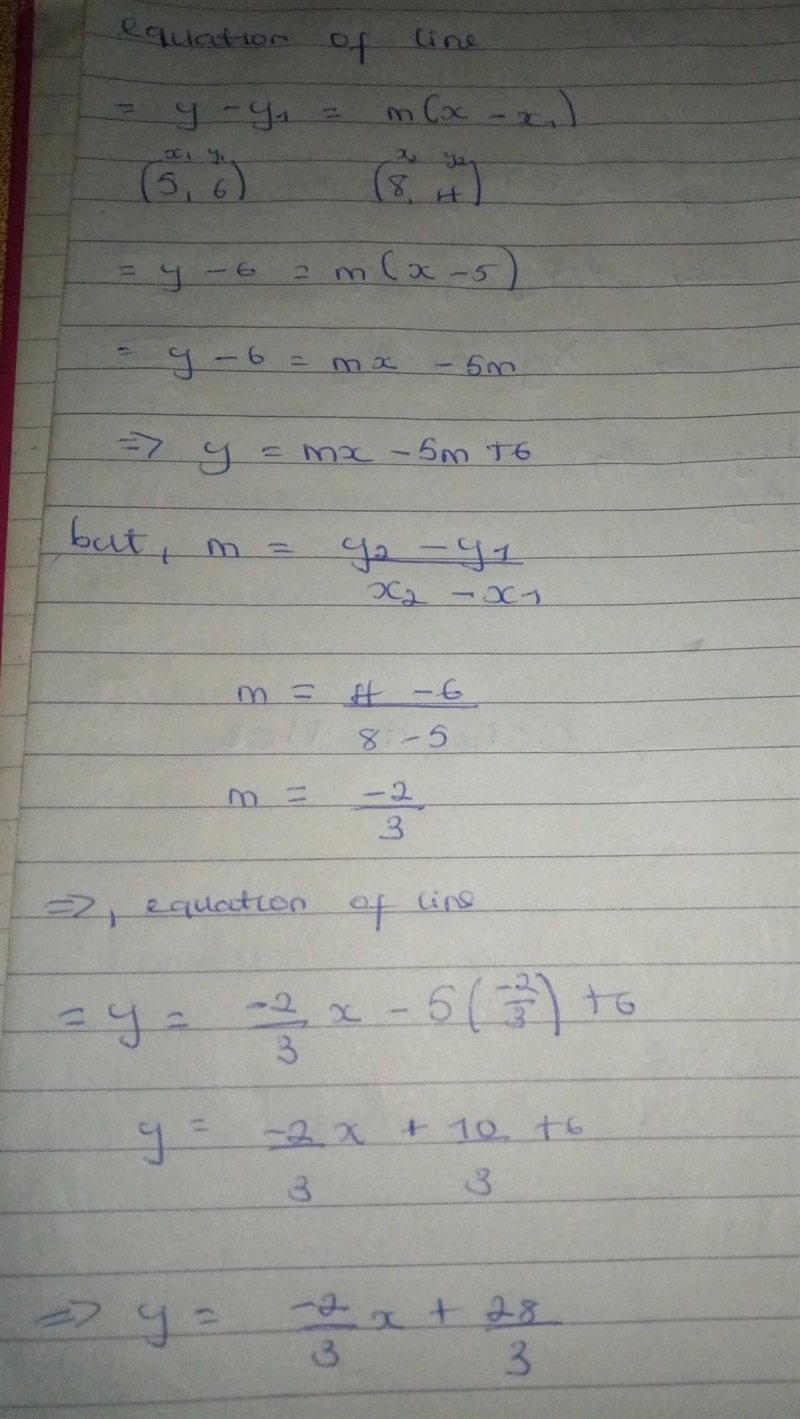 equation of line
= y - y₁ = m(x - x₁)
x₁ y₁ x₂ y₂
(5, 6) (8, 4)
= y - 6 = m(x - 5)
= y - 6 = mx - 5m
=> y = mx - 5m + 6
but, m = y₂ - y₁
x₂ - x₁
m = 4 - 6
8 - 5
m = -2
3
=>, equation of line
= y = -2/3 x - 5(-2/3) + 6
y = -2/3 x + 10/3 + 6
=> y = -2/3 x + 28/3